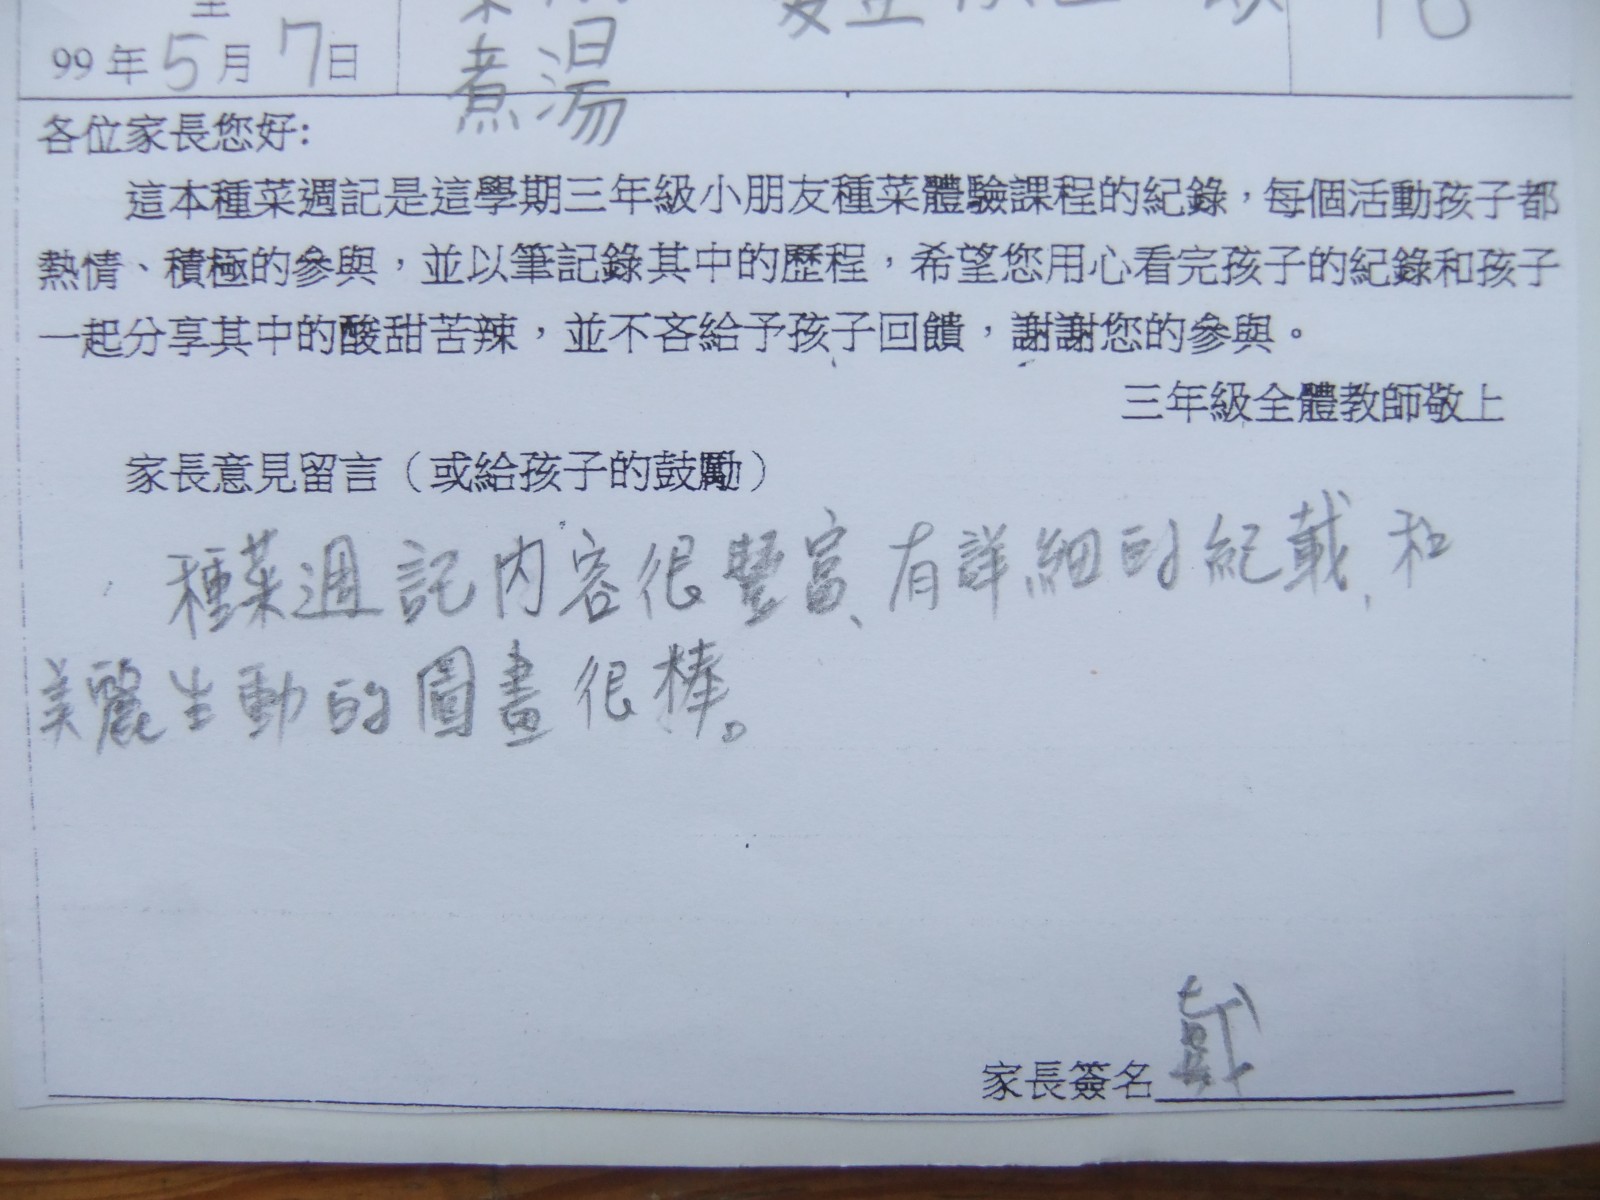 至
99年5月7日
煮湯
各位家長您好:
這本種菜週記是這學期三年級小朋友種菜體驗課程的紀錄，每個活動孩子都
熱情、積極的參與，並以筆記錄其中的歷程，希望您用心看完孩子的紀錄和孩子
一起分享其中的酸甜苦辣，並不吝給予孩子回饋，謝謝您的參與。
三年級全體教師敬上
家長意見留言（或給孩子的鼓勵）
種菜週記内容很豐富、有詳細的紀載，和
美麗生動的圖畫很棒。
家長簽名 戴